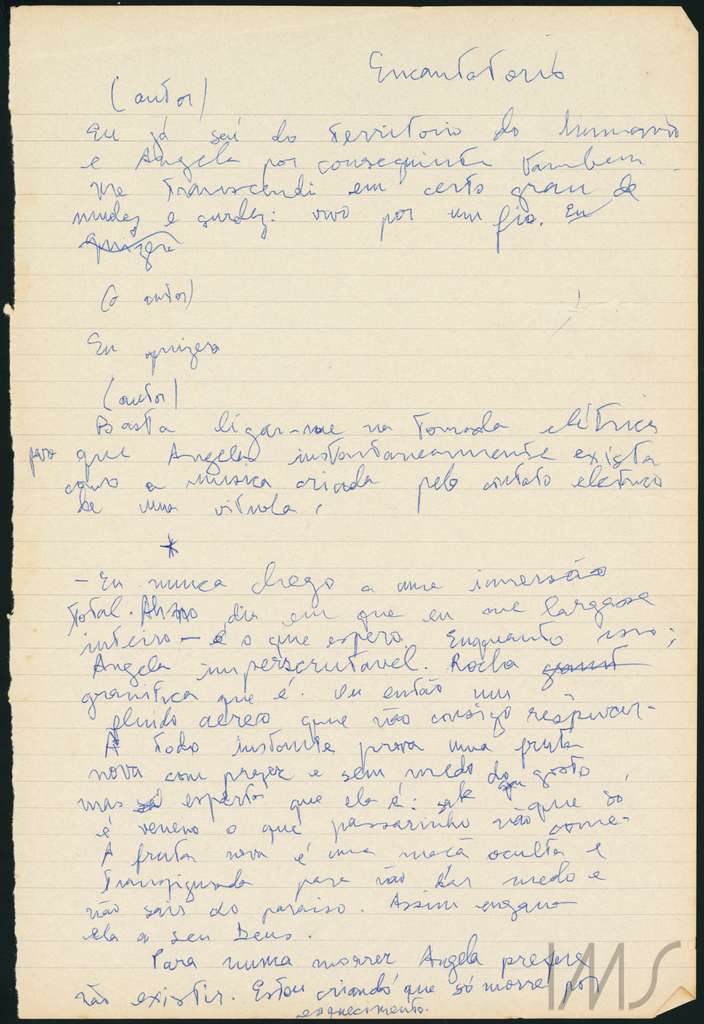 Encantatorio
(autor)
Eu já saí do territorio do humano
e Angela por conseguinte tambem.
Me transcendi em certo grau de
mudez e surdez: vivo por um fio. Eu
quizera
(o autor)
Eu quizera
(autor)
Basta ligar-me na tomada elétrica
para que Angela instantaneamente exista
como a musica criada pelo contato eletrico
de uma vitrola.
*
- Eu nunca chego a uma imersão
total. Ah no dia em que eu me largasse
inteiro - é o que espero. Enquanto isso;
Angela imperscrutavel. Rocha
granitica que é. Ou então um
fluido aereo que não consigo respirar-
A todo instante prova uma fruta
nova com prazer e sem medo do seu gosto
mas esperta que ela é: sabe que só
é veneno o que passarinho não come.
A fruta nova é uma maçã oculta e
transfigurada para não dar medo e
não sair do paraiso. Assim engana
ela a seu Deus.
Para nunca morrer Angela prefere
não existir. Estou criando que só morre por
esquecimento.
IMS